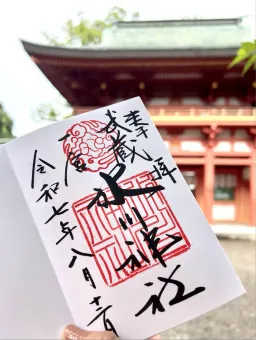 奉拝
武蔵一宮
氷川神社
令和七年八月十三日